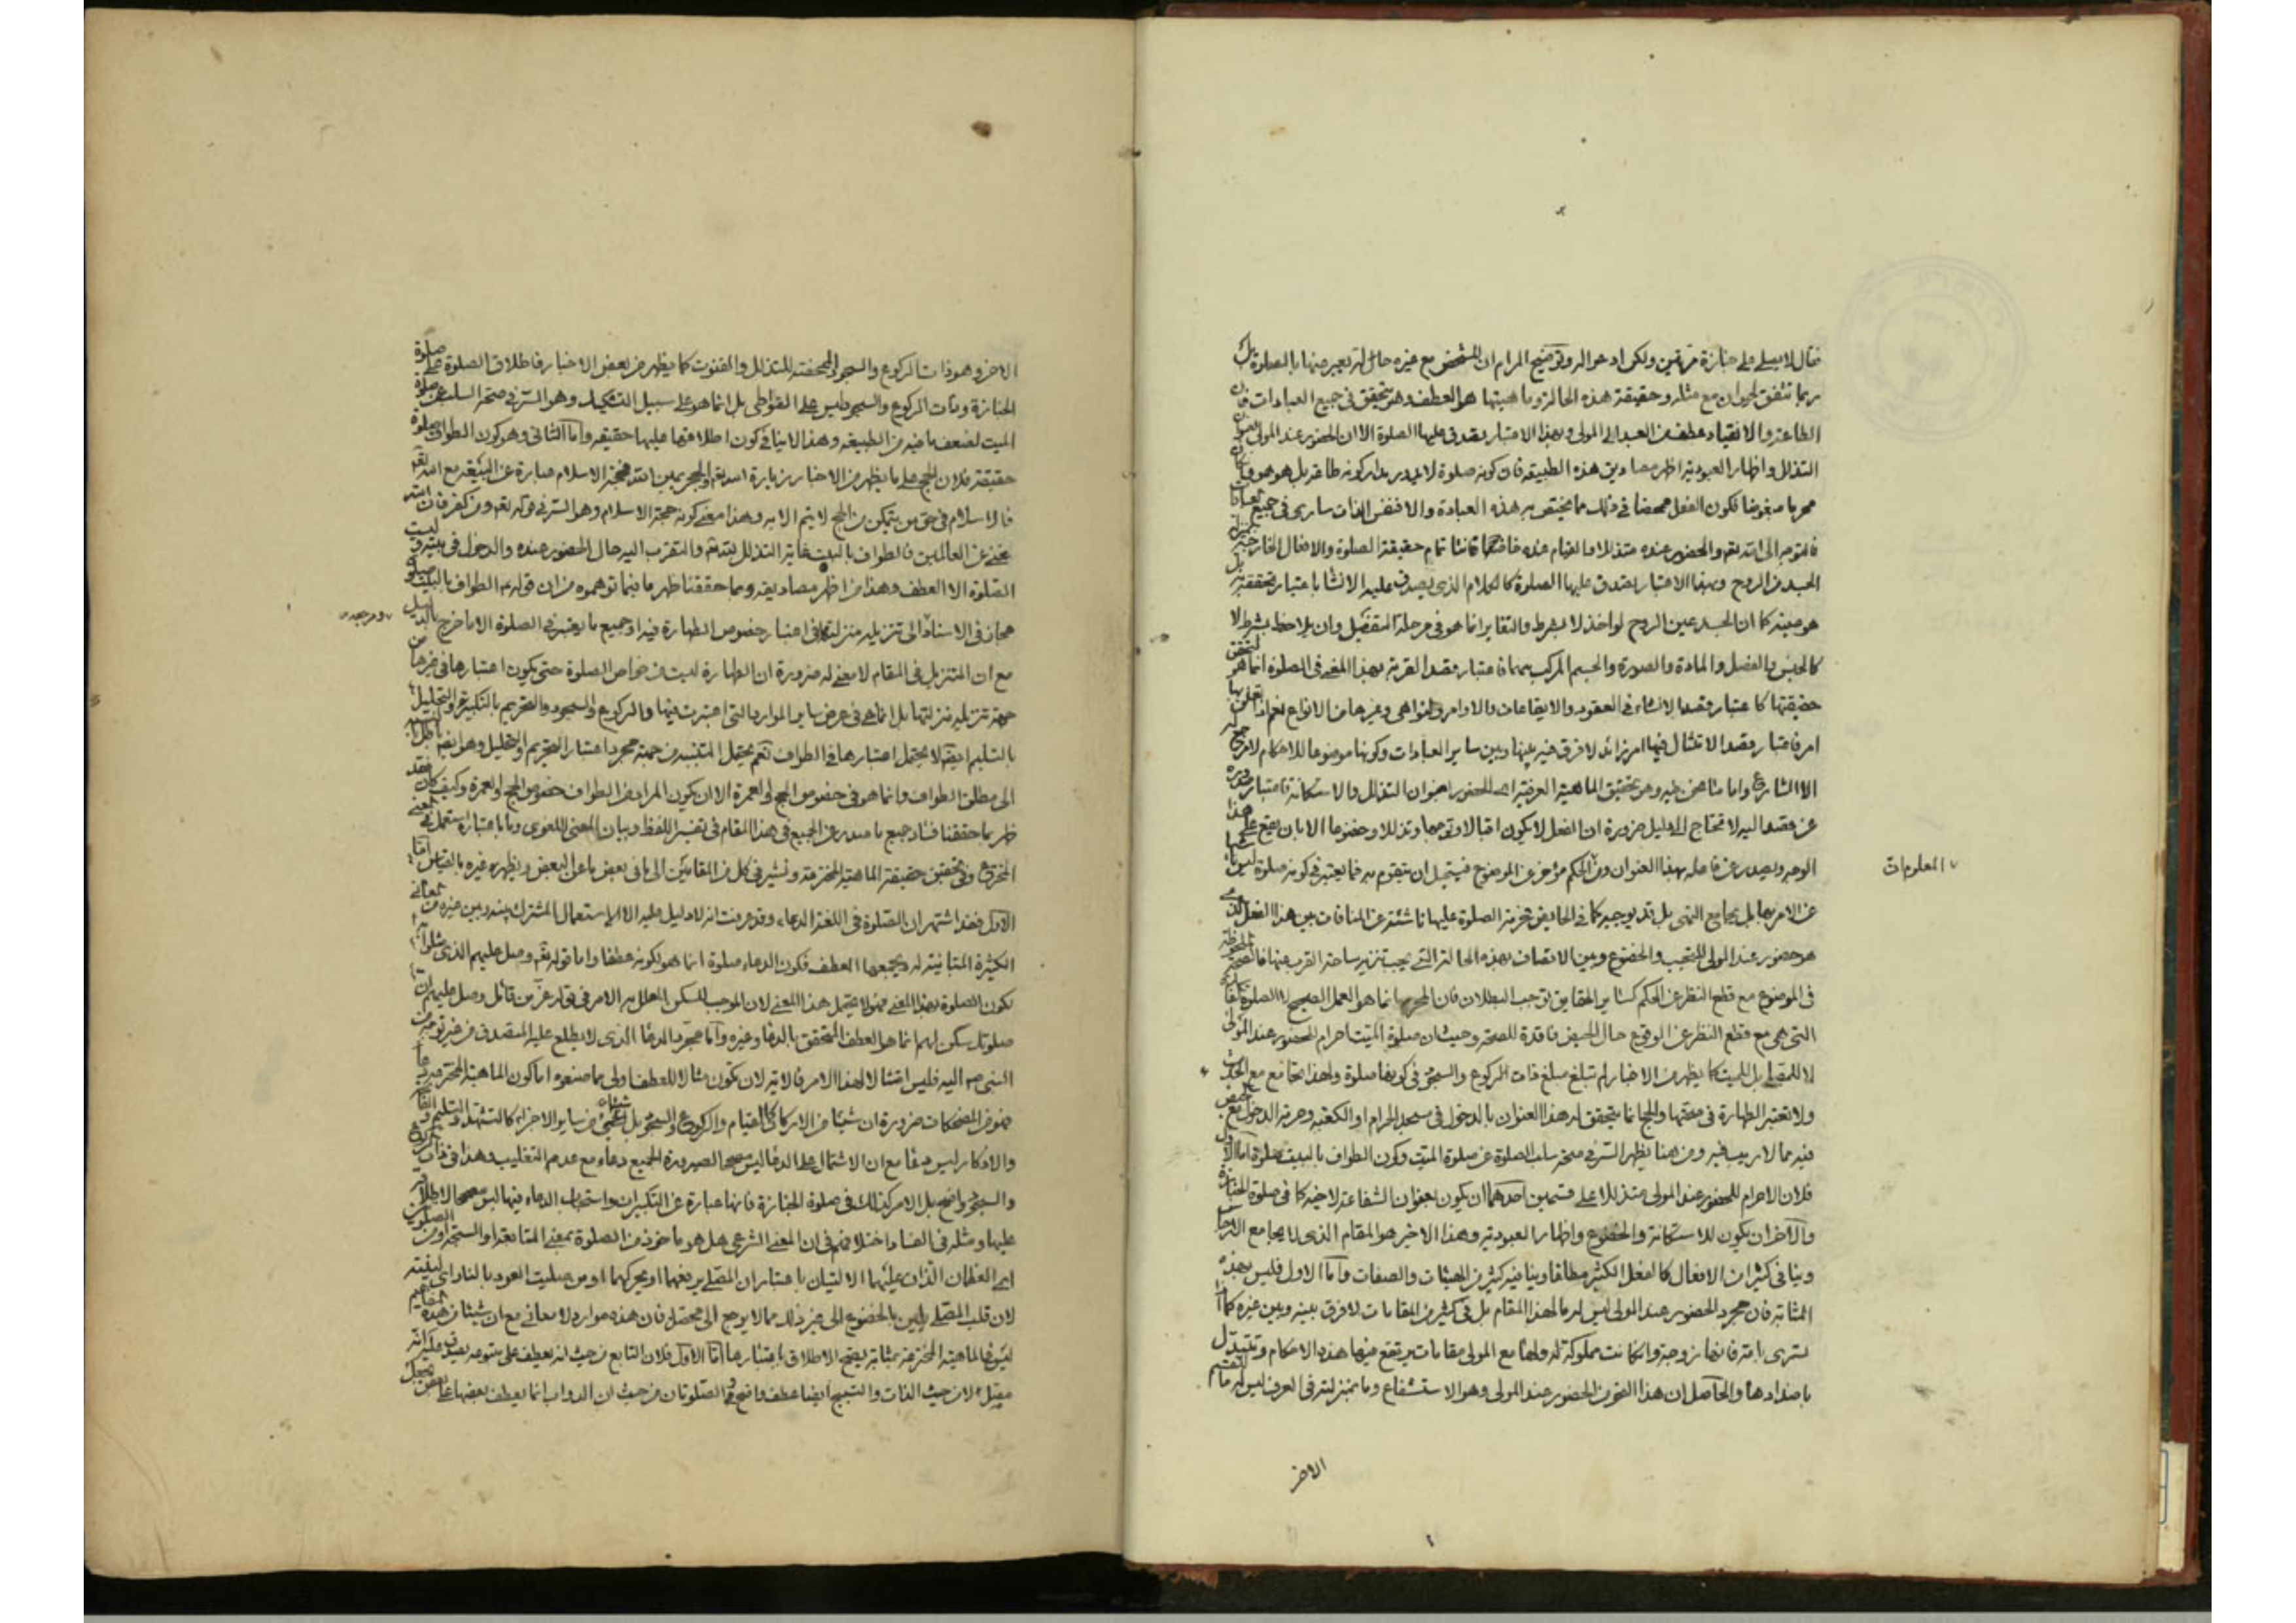 فقال لا يصلى على جنازة مرتين ولكن ادعوا له وتوضيح المرام ان للشخص مع غيره حالة يعبر عنها بالصلوة بل
ربما تتفق لحيوان مع مثله وحقيقة هذه الحالة وماهيتها هو العطف وهو يتحقق في جميع العبادات فان
الطاعة والانقياد عطف من العبد الى المولى وبهذا الاعتبار يصدق عليها الصلوة الا ان الحضور عند المولى
التذلل واظهار العبودية اظهر مصاديق هذه الطبيعة فان كونه صلوة لا يدور مدار كونه طاعة بل هو هو
محرما مبغوضا فكون الفعل ممحضا في ذلك مما يختص به هذه العبادة والا فنفس الذات سارى في جميع
فالتوجه الى الله تعه والحضور عنده متذللا والقيام عنده خاشعا قانتا تمام حقيقة الصلوة والافعال الخارجية
الجسد من الروح وبهذا الاعتبار يصدق عليها الصلوة كالكلام الذى يصدق عليه الانشا باعتبار تحققه به بل
هو عينه كما ان الجسد عين الروح لو اخذ لا بشرط والتغاير انما هو في مرحلة التفصيل وان يلاحظ بشرط لا
كالجنس والفصل والمادة والصورة والجسم المركب منهما فاعتبار قصد القربة بهذا المعنى في الصلوة انما هو لتحقق
حقيقتها كاعتبار قصد الانشاء في العقود والايقاعات والاوامر والنواهى وغيرها من الانواع نعم
امر فاعتبار قصد الامتثال فيها امر زائد لا فرق فيه بينها وبين ساير العبادات وكونها موضوعا للاحكام لا مرجع له
الا الشارع واما ما نحن فيه وهو تحقيق الماهية العرفية اى الحضور بعنوان التذلل والاستكانة فاعتبار
عن قصد اليه لا يحتاج الى دليل ضرورة ان الفعل لا يكون اقبالا وتوجها وتذللا وخضوعا الا بان يقع على هذا
الوجه ويصدر عن فاعله بهذا العنوان ومن الحكم مؤخر عن الموضوع فيستحيل ان يتقوم به فما يعتبر في كونه صلوة ليس
المعلومات
عن الامر بها بل يجامع النهى بل قد يوجبه كما في الحايض فحرمة الصلوة عليها ناشئة عن المنافات بين هذا الفعل الذى
هو حضور عند المولى للتعبد والخضوع وبين الاتصاف بهذه الحالة التى يجب تنزيه ساحة القرب عنها فالصحة
في الموضوع مع قطع النظر عن الحكم كسائر الحقايق توجب البطلان فان المحرم انما هو العمل الصحيح لا الصلوة
التى هى مع قطع النظر عن الوقوع حال الحيض فاقدة للصحة وحيث ان صلوة الميت احرام للحضور عند المولى
لا للمصلى بل للميت كما يظهر من الاخبار لم تبلغ مبلغ ذات الركوع والسجود في كونها صلوة ولهذا تجامع مع الحدث
ولا تعتبر الطهارة في صحتها والحج انما يتحقق له هذا العنوان بالدخول في مسجد الحرام او الكعبة وحرمة الدخول مع
فيه مما لا ريب فيه ومن هنا يظهر السر في صحة سلب الصلوة عن صلوة الميت وكون الطواف بالبيت صلوة اما الاول
فلان الاحرام للحضور عند المولى متذللا على قسمين احدهما ان يكون بعنوان الشفاعة لاخيه كما في صلوة الجنازة
والآخر ان يكون للاستكانة والخضوع واظهار العبودية وهذا الاخير هو المقام الذى لا يجامع
وينافى كثيرا من الافعال كالفعل الكثير مطلقا وينافيه كثير من الهيئات والصفات واما الاول فليس بهذه
المثابة فان مجرد الحضور عند المولى ليس له ما لهذا المقام بل في كثير من المقامات لا فرق بينه وبين غيره كما
تسرى بامته فانها زوجة وان كانت مملوكة له ولها مع المولى مقامات يرتفع فيها هذه الاحكام وتتبدل
باضدادها والحاصل ان هذا النحو من الحضور عند المولى وهو الاستشفاع وما بمنزلته في العرف ليس له ما
الاخر
الاخر وهو ذات الركوع والسجود الممحضة للتذلل والقنوت كما يظهر من بعض الاخبار فاطلاق الصلوة على صلوة
الجنازة وذات الركوع والسجود ليس على التواطى بل انما هو على سبيل التشكيك وهو السر في صحة السلب عن صلوة
الميت لضعف ما فيه من الطبيعة وهذا لا ينافى كون اطلاقها عليها حقيقة واما الثانى وهو كون الطواف صلوة
حقيقة فلان الحج على ما يظهر من الاخبار زيارة الله تعه والحجر يمين الله فحجة الاسلام عبارة عن البيعة مع الله تعه
فالاسلام في حق من يتمكن من الحج لا يتم الا به وهذا معنى كونه حجة الاسلام وهو السر في قوله تعه ومن كفر فان الله
غنى عن العالمين فالطواف بالبيت غاية التذلل لله تعه والتقرب اليه حال الحضور عنده والدخول في بيته وليست
الصلوة الا العطف وهذا من اظهر مصاديقه ومما حققنا ظهر ما فيما توهموه من ان قوله ع الطواف بالبيت صلوة
مجاز في الاسناد الى تنزيله منزلتها في اعتبار خصوص الطهارة فيه او جميع ما يعتبر في الصلوة الا ما خرج بالدليل
مع ان التنزيل في المقام لا معنى له ضرورة ان الطهارة ليست من خواص الصلوة حتى يكون اعتبارها في غيرها من
جهة تنزيله منزلتها بل انما هى في عرض ساير الموارد التى اعتبرت فيها والركوع والسجود والتحريم بالتكبير والتحليل
بالتسليم ايضا لا يحتمل اعتبارها في الطواف نعم يحتمل التشبيه من جهة مجرد اعتبار التحريم والتحليل وهو ايضا
الى مطلق الطواف وانما هو في خصوص الحج والعمرة الا ان يكون المراد من الطواف خصوص الحج والعمرة وكيف كان فقد
ظهر بما حققنا فساد جميع ما صدر عن الجميع في هذا المقام في تفسير اللفظ وبيان المعنى اللغوى وما باعتباره استعمل في المعنى
المخترع وفي تحقيق حقيقة الماهية المخترعة ونشير في كل من المقامين الى ما في بعض ما عن البعض ويظهر غيره بالقياس اما
الاول فقد اشتهر ان الصلوة في اللغة الدعاء وقد عرفت انه لا دليل عليه الا الاستعمال المشترك بينه وبين غيره من المعانى
الكثيرة المتباينة له ويجمعها العطف فكون الدعاء صلوة انما هو لكونه عطفا واما قوله تعه وصل عليهم الذى
بكون الصلوة بهذا المعنى فهو لا يحتمل هذا المعنى لان الموجب للسكن المعلل به الامر في قوله عز من قائل وصل عليهم ان
صلوتك سكن لهم انما هو العطف المتحقق بالدعا وغيره واما مجرد الدعا الذى لا يطلع عليه المتصدق من غير توجه من
النبى صم اليه فليس امتثالا لهذا الامر فالاية لان تكون مثالا للعطف اولى مما صنعوه اما كون الماهية المخترعة دعا
فهو من المضحكات ضرورة ان شيئا من الاركان كالقيام والركوع والسجود بل شيئا من ساير الاجزاء كالتشهد والتسليم
والاذكار ليس دعا مع ان الاشتمال على الدعا ليس مصححا لصيرورة الجميع دعاء مع عدم التغليب وهذا في ذات الركوع
والسجود واضح بل الامر كذلك في صلوة الجنازة فانها عبارة عن التكبيرات واستحباب الدعاء فيها ليس مصححا لاطلاقه
عليها ومثله في الفساد اختلافهم في ان المعنى الشرعى هل هو ماخوذ من الصلوة بمعنى المتابعة او السبحة او من الصلوين
اى العظمان اللذان عليهما الاليتان باعتبار ان المصلى يرفعهما او يحركهما او من صليت العود بالنار اى لينته
لان قلب المصلى يلين بالخضوع الى غير ذلك مما لا يرجع الى محصل فان هذه موارد لا معانى مع ان شيئا من هذه
ليس في الماهية المخترعة بمثابة يصح الاطلاق باعتبارها اما الاول فلان التابع من حيث انه يعطف على متبوعه يصدق عليه انه
مصل لا من حيث الذات والتسبيح ايضا عطف واضح والصلوتان من حيث ان الدواب انما يعطف بعضها على بعض